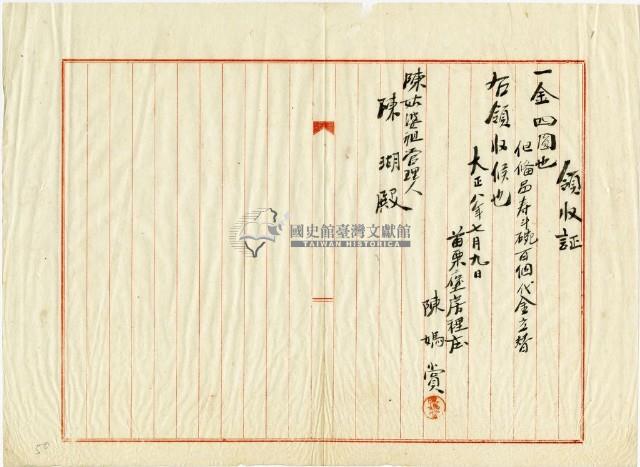 領收証
一金四圓也
但備品春斗碗百個代金立替
右領收候也
大正八年七月九日
苗栗一堡房裡庄
陳媽賞
陳姑婆祖管理人
陳湖殿
國史館臺灣文獻館
TAIWAN HISTORICA
50